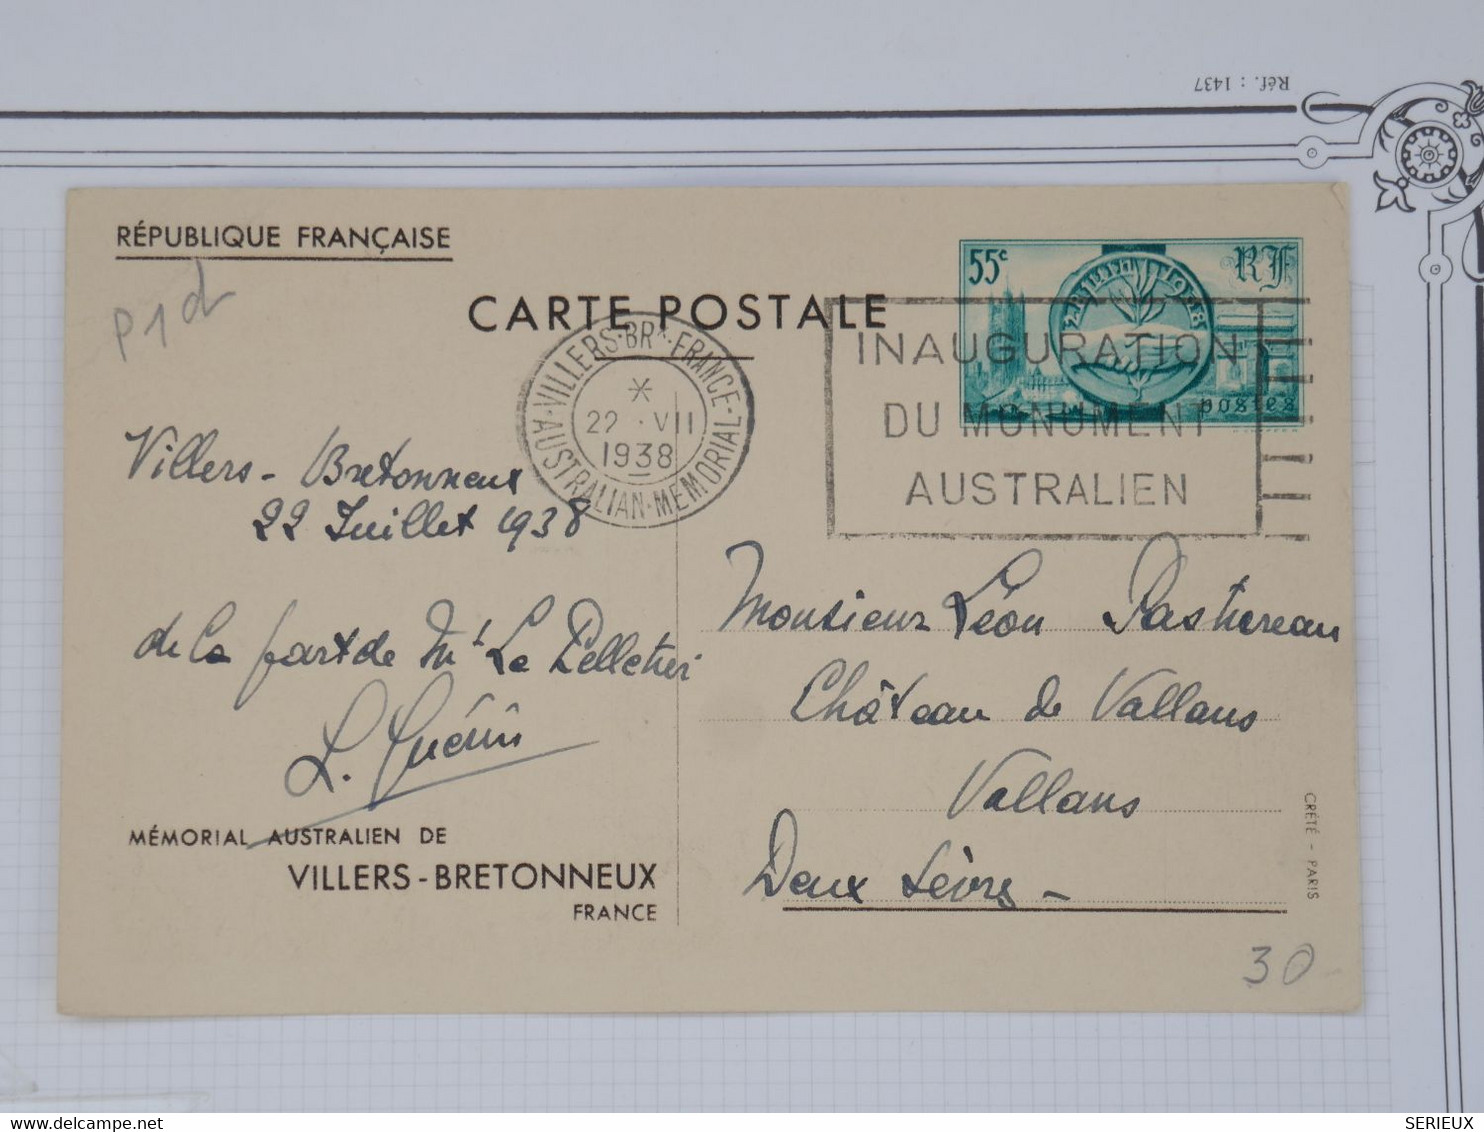 Réf. : 1437
RÉPUBLIQUE FRANÇAISE
55c
RF
postes
P1d
CARTE POSTALE
VILLERS-BRx-FRANCE
22 · VII
1938
AUSTRALIAN-MEMORIAL
INAUGURATION
DU MONUMENT
AUSTRALIEN
Villers - Bretonneux
22 Juillet 1938
de la part de Mr Le Pelletier
L. Guérin
Monsieur Léon Pastureau
Château de Vallans
Vallans
Deux Sèvres -
MÉMORIAL AUSTRALIEN DE
VILLERS-BRETONNEUX
FRANCE
CRÉTÉ - PARIS
30
delcampe.net
SERIEUX